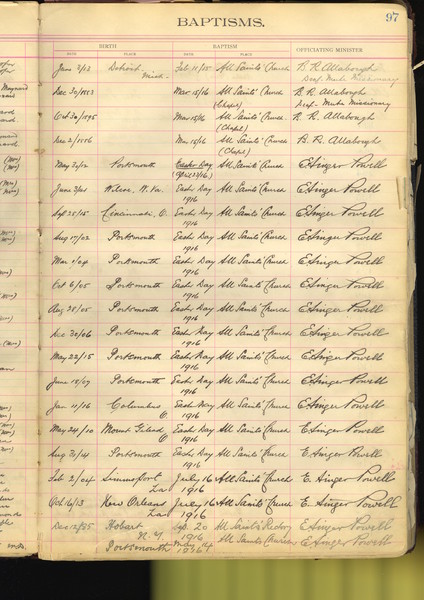 97
BAPTISMS.
BIRTH BAPTISM OFFICIATING MINISTER
DATE PLACE DATE PLACE
June 2/13 Detroit, Feb 11/15 All Saints' Church B. R. Allabough
Mich. Deaf-Mute Missionary
Dec 30/1883 Mar 15/16 All Saints' Church B. R. Allabough
(Chapel) Deaf-Mute Missionary
Oct 30/1895 Mar 15/16 All Saints' Church B. R. Allabough
(Chapel)
Dec 2/1886 Mar 15/16 All Saints' Church B. R. Allabough
(Chapel)
Portsmouth Easter Day All Saints' Church E Ainger Powell
June Easter Day All Saints' Church E Ainger Powell
1916
Sep 25/15 Cincinnati, O. Easter Day All Saints' Church E Ainger Powell
1916
Aug 15/02 Portsmouth Easter Day All Saints' Church E Ainger Powell
1916
Mar Portsmouth Easter Day All Saints' Church E Ainger Powell
1916
Oct 6/05 Portsmouth Easter Day All Saints' Church E Ainger Powell
1916
Aug 28/05 Portsmouth Easter Day All Saints' Church E Ainger Powell
1916
Dec 30/06 Portsmouth Easter Day All Saints' Church E Ainger Powell
1916
May 22/15 Portsmouth Easter Day All Saints' Church E Ainger Powell
1916
June 18/09 Portsmouth Easter Day All Saints' Church E Ainger Powell
1916
Jan 11/16 Columbus Easter Day All Saints' Church E Ainger Powell
O. 1916
May 24/10 Mount Gilead Easter Day All Saints' Church E Ainger Powell
O. 1916
Aug 31/14 Portsmouth Easter Day All Saints' Church E Ainger Powell
1916
Feb 2/04 Simmesport July 16 All Saints' Church E. Ainger Powell
La. 1916
Oct 16/13 New Orleans July 16 All Saints' Church E. Ainger Powell
La. 1916
Dec 12/85 Hobart Sep. 20 All Saints' Rectory E Ainger Powell
N.Y. 1916
Portsmouth 1916 All Saints Church E Ainger Powell